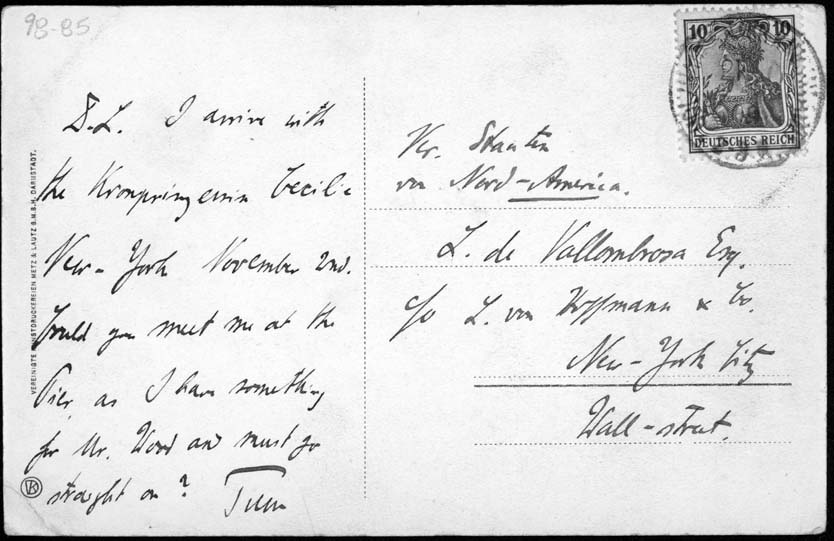 98-85
D.L. I arrive with
the Kronprinzessin Cecilie
New-York November 2nd.
Could you meet me at the
Pier, as I have something
for Mr. Wood and must go
straight on?
VEREINIGTE KUNSTDRUCKEREIEN METZ & LAUTZ G.M.B.H. DARMSTADT.
10 10
DEUTSCHES REICH
Ver. Staaten
von Nord-America.
L. de Vallombrosa Esq.
c/o L. von Hoffmann & Co.
New-York City
Wall-street.